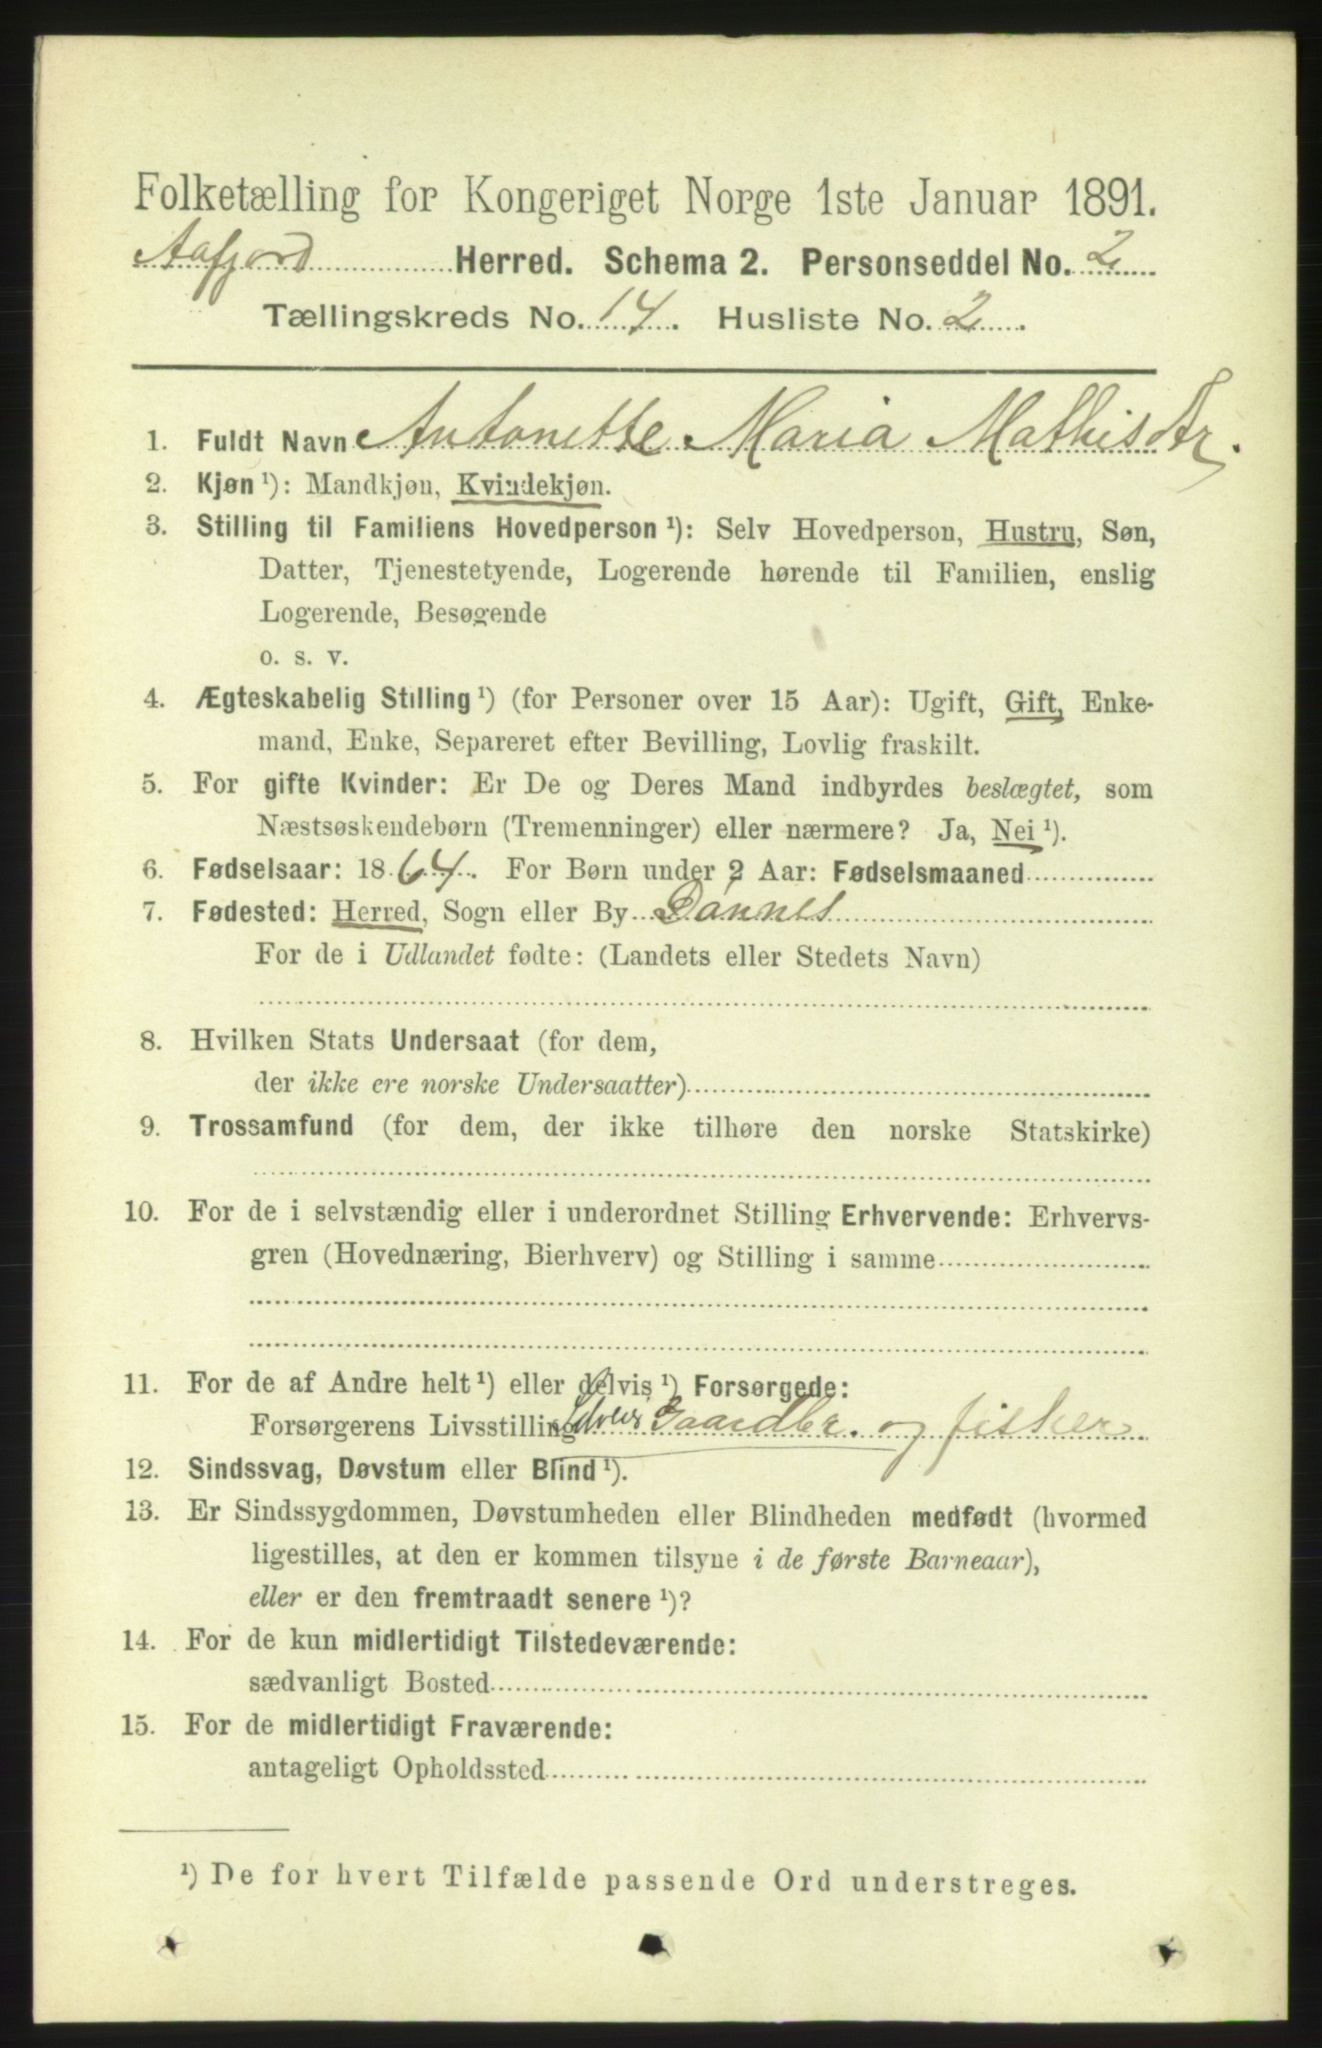 Folketælling for Kongeriget Norge 1ste Januar 1891.
Aafjord Herred. Schema 2. Personseddel No. 2
Tællingskreds No. 14. Husliste No. 2.
1. Fuldt Navn Antonette Maria Mathisdtr.
2. Kjøn ¹): Mandkjøn, Kvindekjøn.
3. Stilling til Familiens Hovedperson ¹): Selv Hovedperson, Hustru, Søn,
Datter, Tjenestetyende, Logerende hørende til Familien, enslig
Logerende, Besøgende
o. s. v.
4. Ægteskabelig Stilling ¹) (for Personer over 15 Aar): Ugift, Gift, Enke-
mand, Enke, Separeret efter Bevilling, Lovlig fraskilt.
5. For gifte Kvinder: Er De og Deres Mand indbyrdes beslægtet, som
Næstsøskendebørn (Tremenninger) eller nærmere? Ja, Nei ¹).
6. Fødselsaar: 1864. For Børn under 2 Aar: Fødselsmaaned
7. Fødested: Herred, Sogn eller By Dónnes
For de i Udlandet fødte: (Landets eller Stedets Navn)
8. Hvilken Stats Undersaat (for dem,
der ikke ere norske Undersaatter)
9. Trossamfund (for dem, der ikke tilhøre den norske Statskirke)
10. For de i selvstændig eller i underordnet Stilling Erhvervende: Erhvervs-
gren (Hovednæring, Bierhverv) og Stilling i samme
11. For de af Andre helt ¹) eller delvis ¹) Forsørgede:
Forsørgerens Livsstilling Gaardbr. og fisker
12. Sindssvag, Døvstum eller Blind ¹).
13. Er Sindssygdommen, Døvstumheden eller Blindheden medfødt (hvormed
ligestilles, at den er kommen tilsyne i de første Barneaar),
eller er den fremtraadt senere ¹)?
14. For de kun midlertidigt Tilstedeværende:
sædvanligt Bosted
15. For de midlertidigt Fraværende:
antageligt Opholdssted
¹) De for hvert Tilfælde passende Ord understreges.